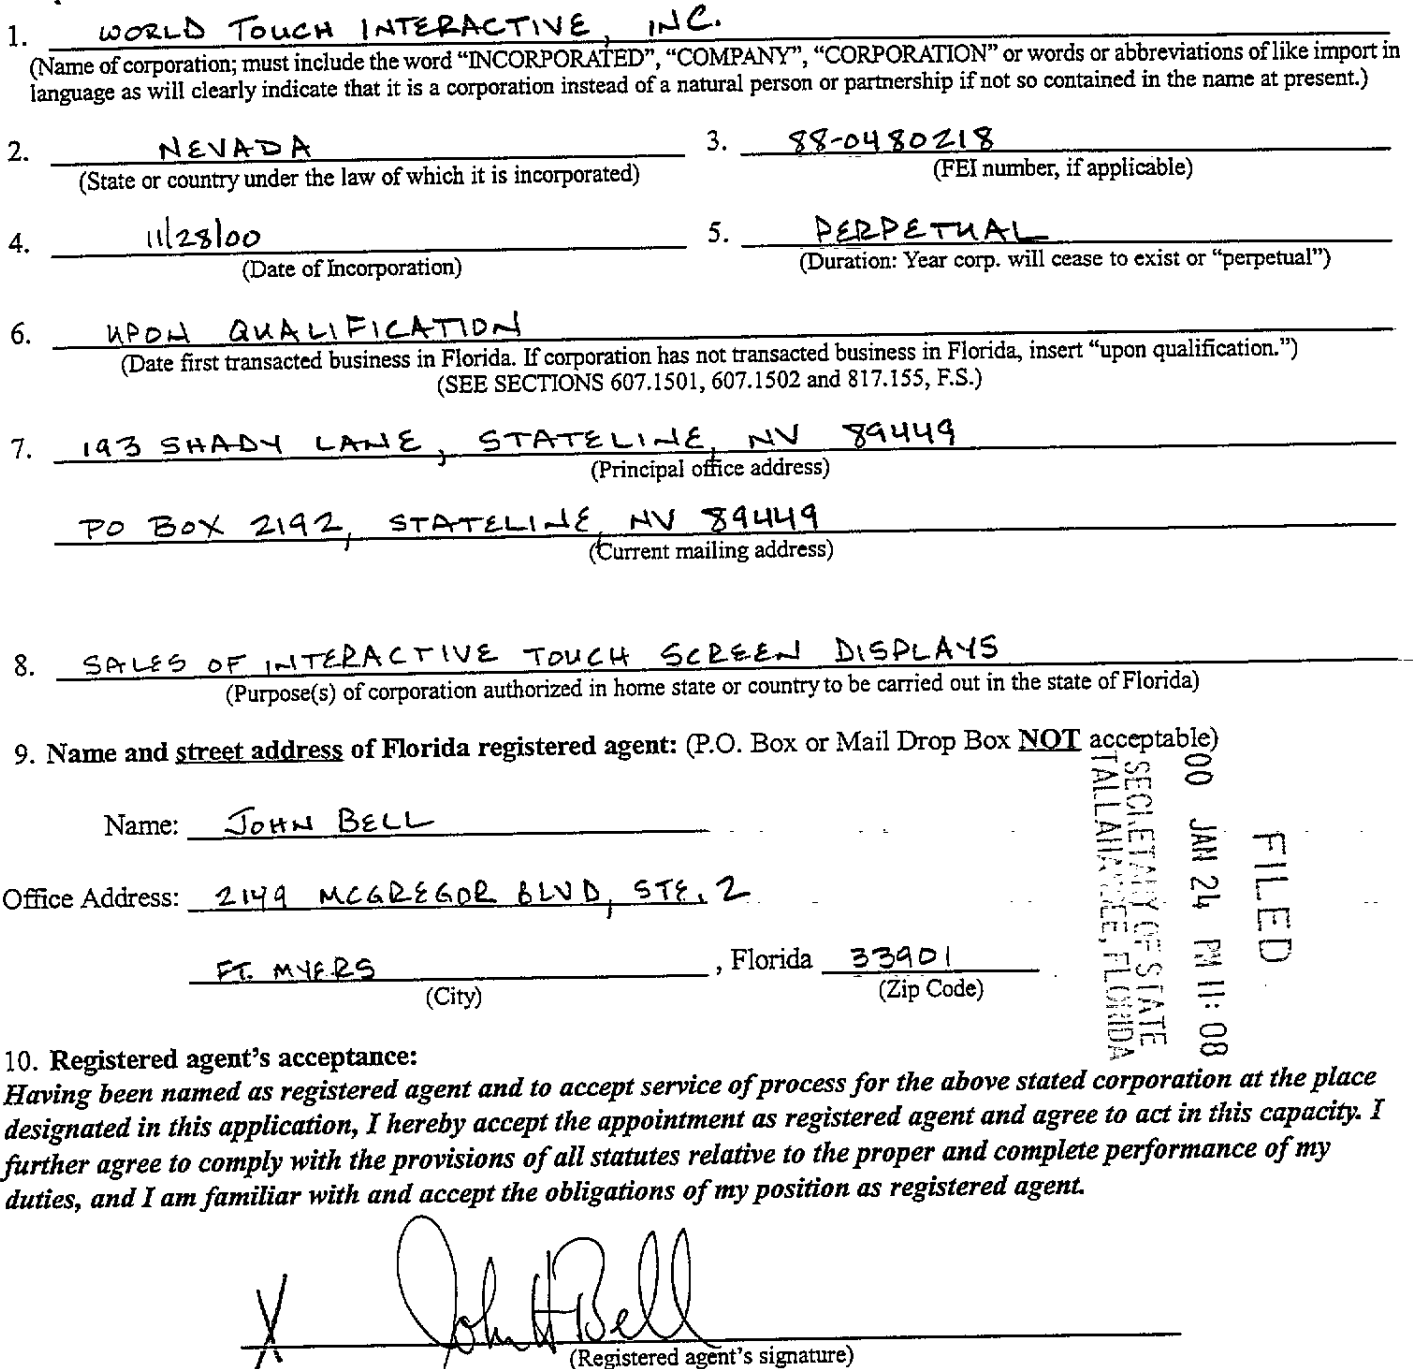 1. WORLD TOUCH INTERACTIVE, INC.
(Name of corporation; must include the word “INCORPORATED”, “COMPANY”, “CORPORATION” or words or abbreviations of like import in
language as will clearly indicate that it is a corporation instead of a natural person or partnership if not so contained in the name at present.)
2. NEVADA 3. 88-0480218
(State or country under the law of which it is incorporated) (FEI number, if applicable)
4. 11/28/00 5. PERPETUAL
(Date of Incorporation) (Duration: Year corp. will cease to exist or “perpetual”)
6. UPON QUALIFICATION
(Date first transacted business in Florida. If corporation has not transacted business in Florida, insert “upon qualification.”)
(SEE SECTIONS 607.1501, 607.1502 and 817.155, F.S.)
7. 193 SHADY LANE, STATELINE, NV 89449
(Principal office address)
PO BOX 2192, STATELINE, NV 89449
(Current mailing address)
8. SALES OF INTERACTIVE TOUCH SCREEN DISPLAYS
(Purpose(s) of corporation authorized in home state or country to be carried out in the state of Florida)
9. Name and street address of Florida registered agent: (P.O. Box or Mail Drop Box NOT acceptable)
Name: JOHN BELL
Office Address: 2149 MCGREGOR BLVD, STE. 2
FT. MYERS, Florida 33901
(City) (Zip Code)
FILED
00 JAN 24 PM 11:08
SECRETARY OF STATE
TALLAHASSEE, FLORIDA
10. Registered agent's acceptance:
Having been named as registered agent and to accept service of process for the above stated corporation at the place
designated in this application, I hereby accept the appointment as registered agent and agree to act in this capacity. I
further agree to comply with the provisions of all statutes relative to the proper and complete performance of my
duties, and I am familiar with and accept the obligations of my position as registered agent.
X John H Bell
(Registered agent's signature)